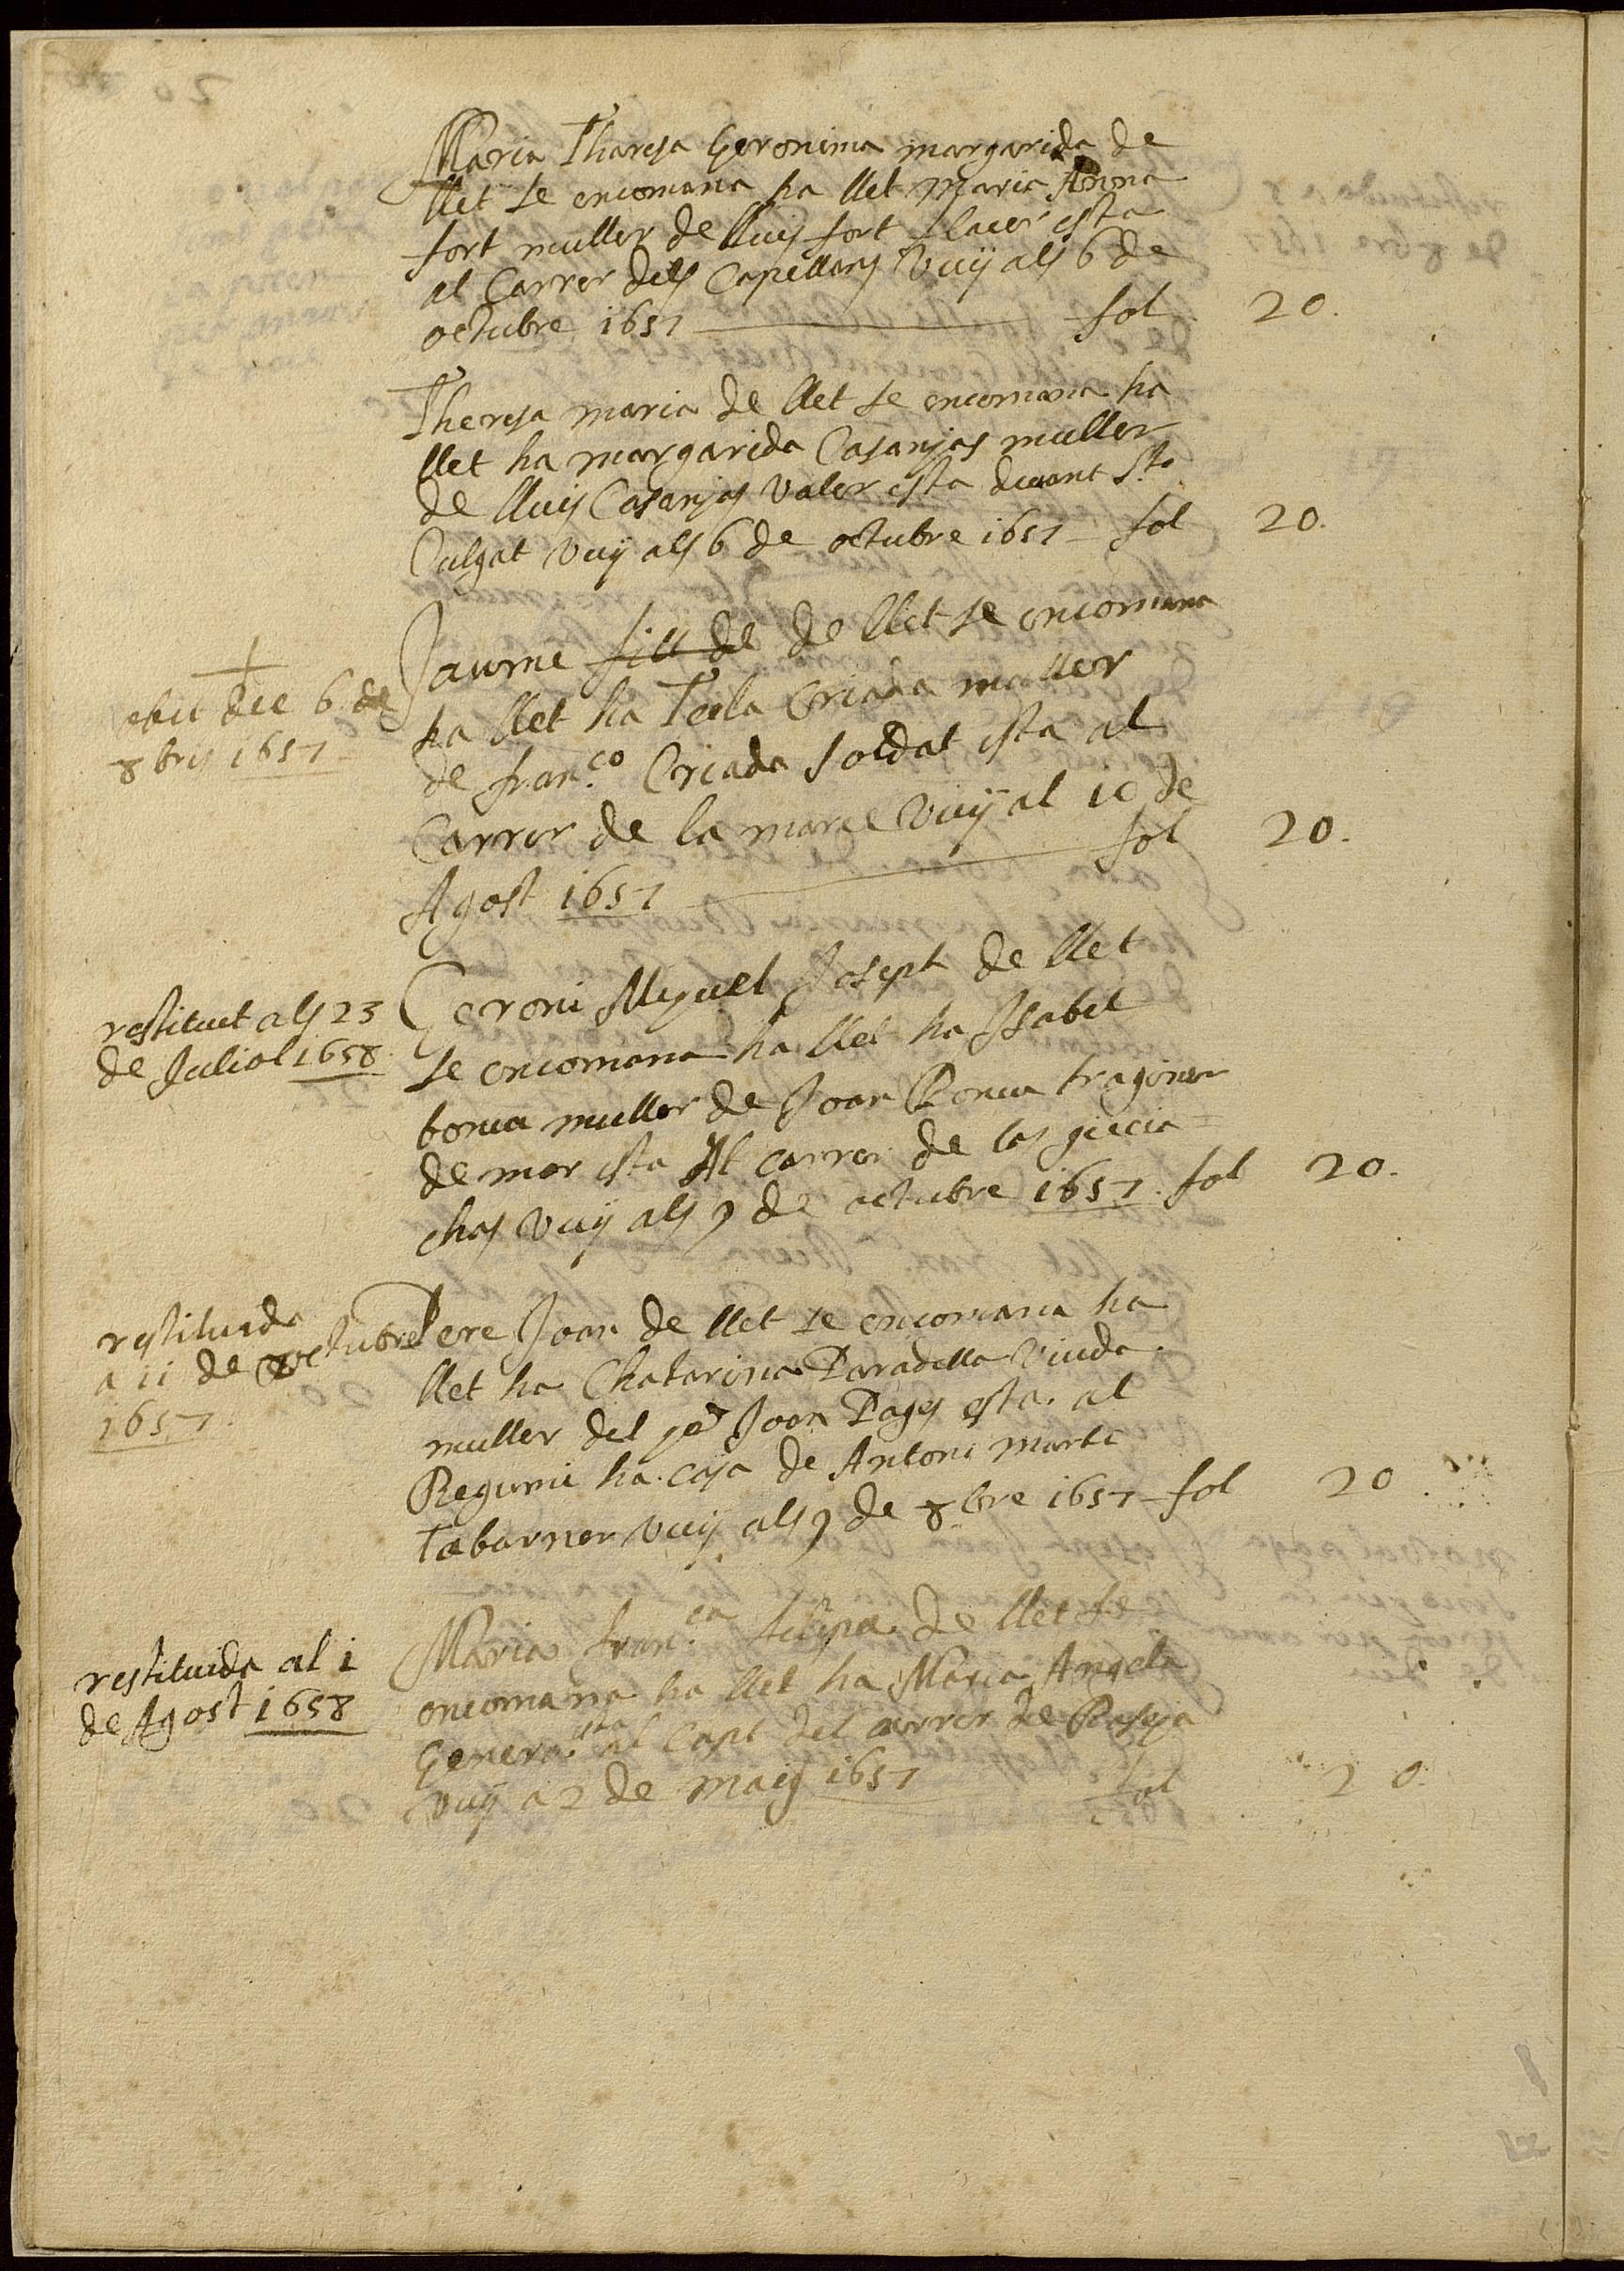 Maria Tharesa Geronima margarida de
llet se encomana ha llet Maria Anna
fort muller de lluis fort flacer esta
al Carrer dels Capellans vuy als 6 de
octubre 1657 fol 20.
Theresa maria de llet se encomana ha
llet ha margarida Casanjas muller
de lluis Casanjas valer esta devant St.
Culgat vuy als 6 de octubre 1657 fol 20.
obiit die 6 de
8bris 1657
Jaume fill de de llet se encomana
ha llet ha Tecla Criada muller
de fran.co Criada soldat esta al
Carrer de la merce vuy al 10 de
Agost 1657 fol 20.
restituit als 23
de Juliol 1658
Geroni Miquel Joseph de llet
se encomana ha llet ha Isabel
bonua muller de Joan Bonua traginer
de mar esta Al carrer de las
chas vuy als 9 de octubre 1657. fol 20.
restituida
a 11 de octubre
1657
Pere Joan de llet se encomana ha
llet ha Chatarina Paradella viuda
muller del Joan Pages esta al
Regumi ha casa de Antoni marti
tabarner vuy als 9 de 8bre 1657 fol 20
restituida al 1
de Agost 1658
Maria fran.ca felipa de llet se
encomana ha llet ha Maria Angela
Genera esta al Capt del carrer de
vuy a 2 de maig 1657 fol 20.